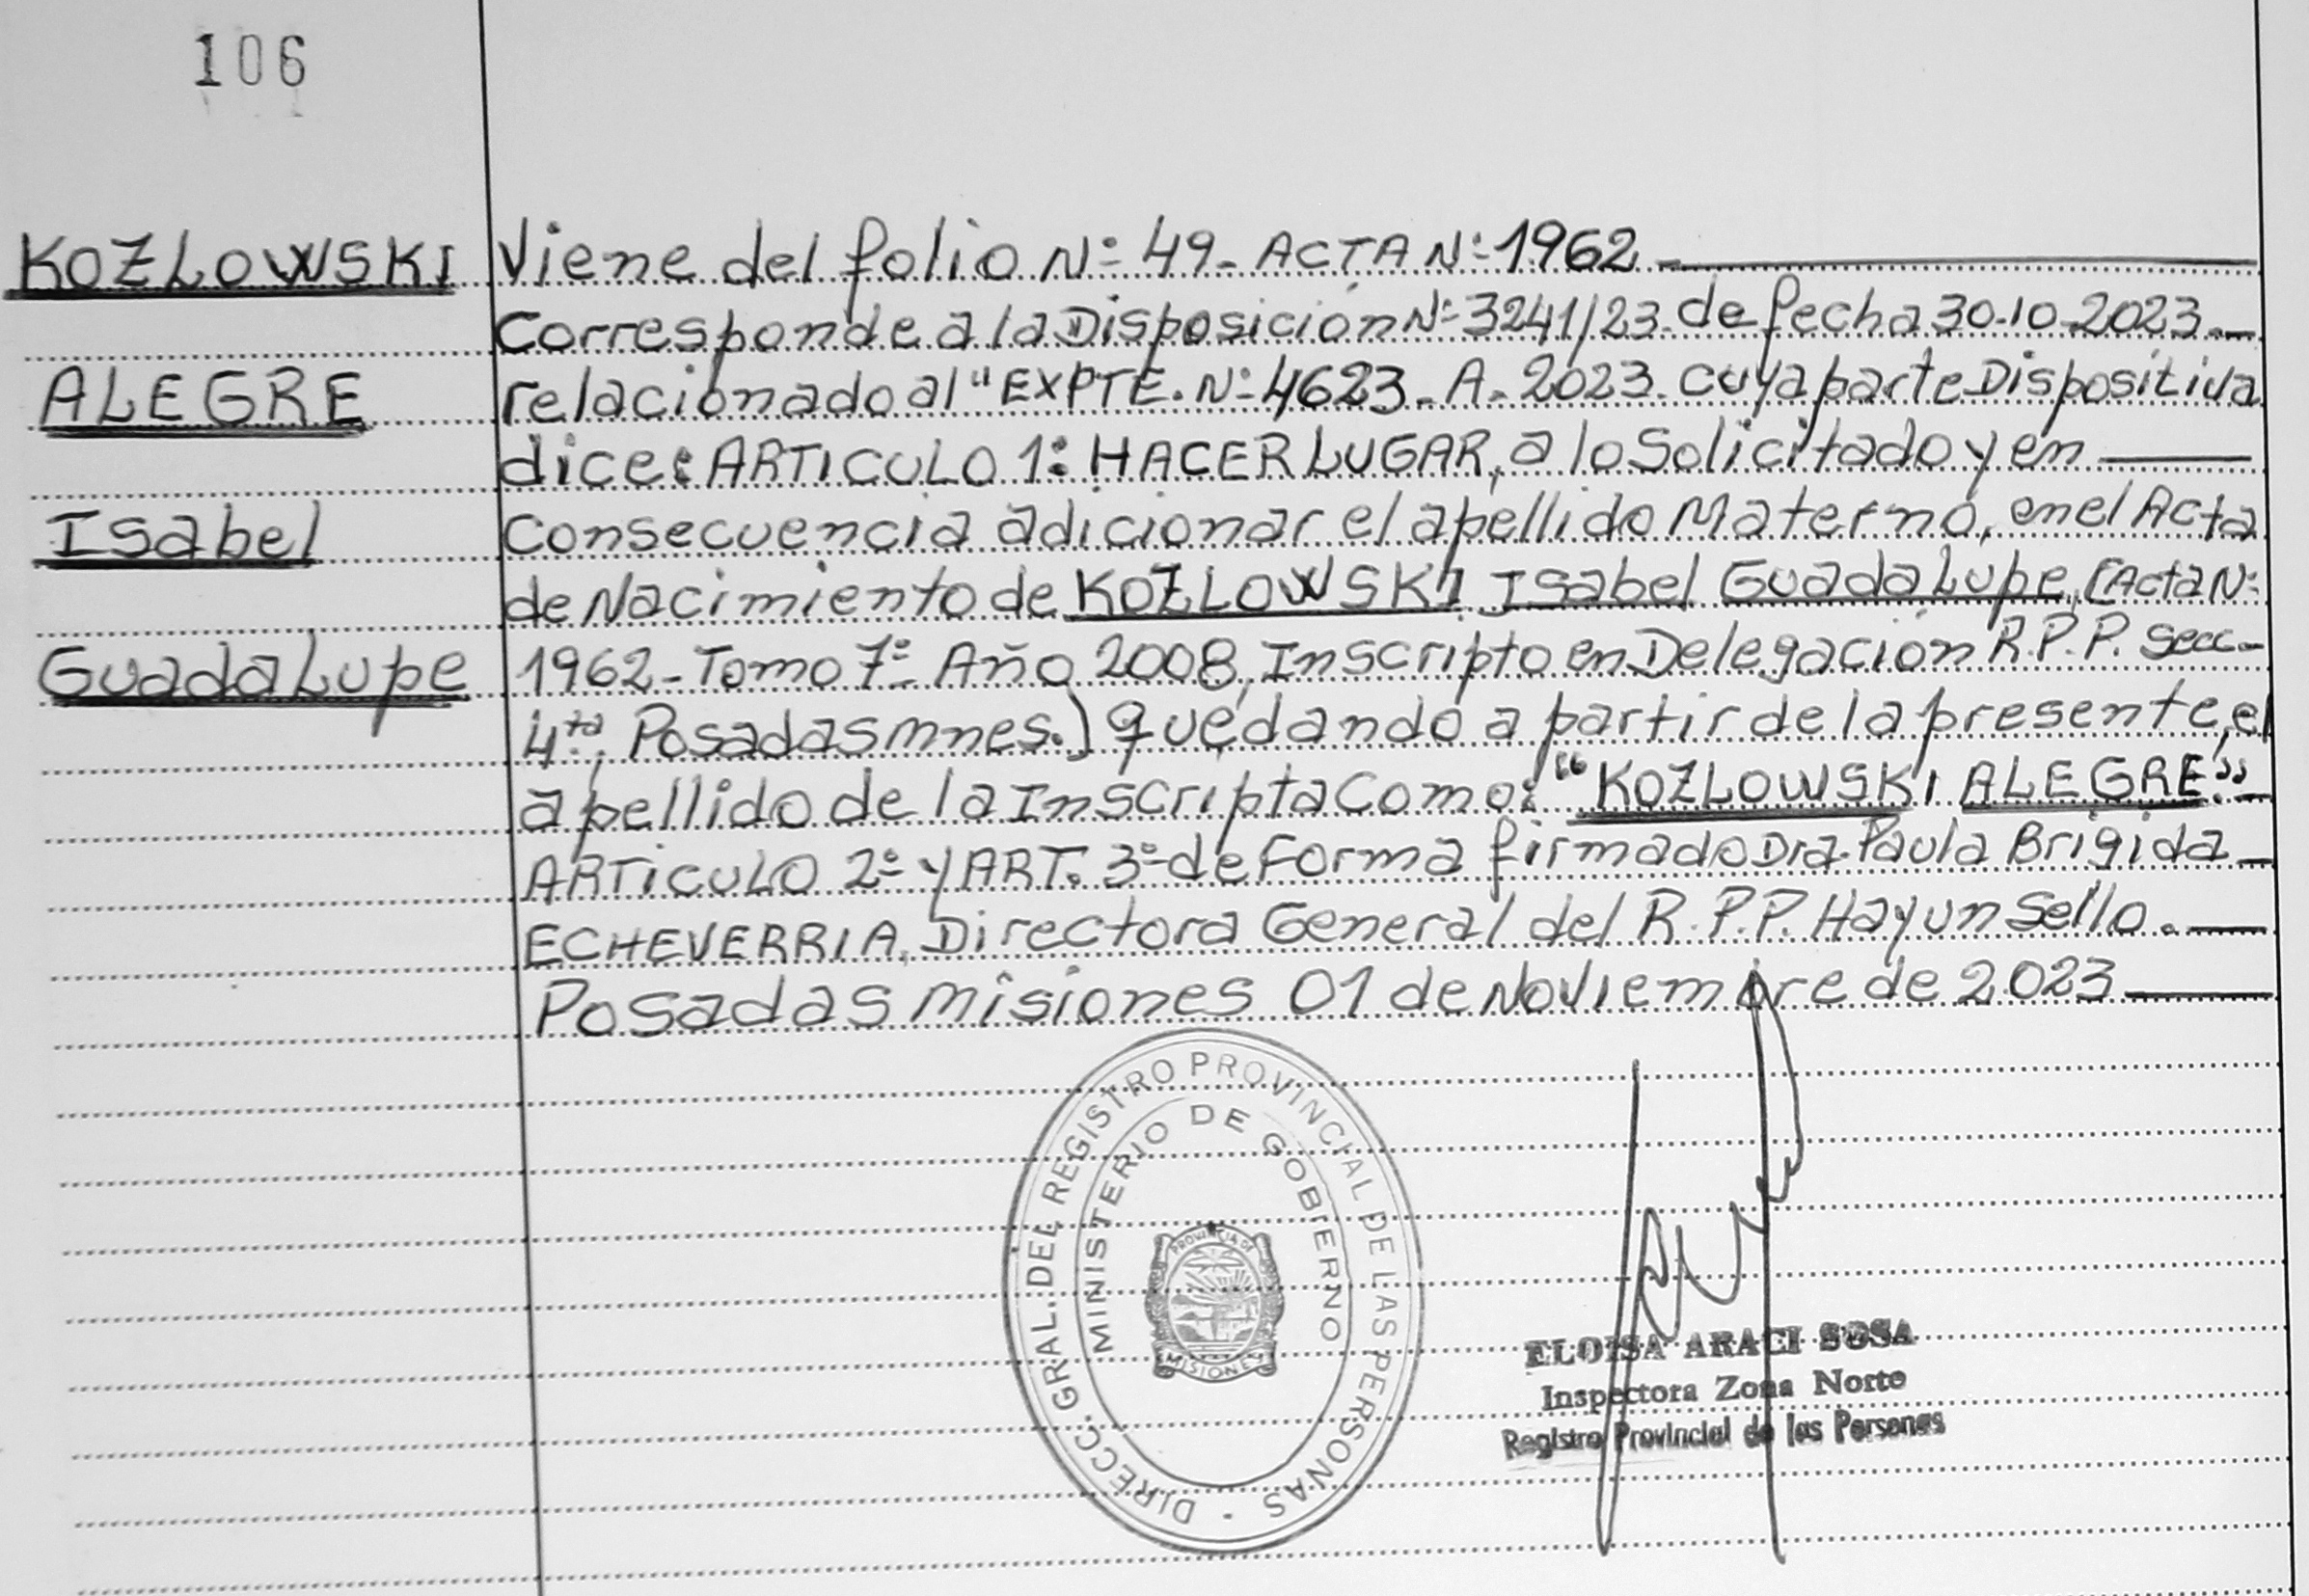 106
KOZLOWSKI
ALEGRE
Isabel
Guadalupe
Viene del folio Nº 49 - ACTA Nº 1962
Corresponde a la Disposición Nº 3241/23 de fecha 30-10-2023.
relacionado al "EXPTE. Nº 4623 - A - 2023 cuya parte Dispositiva
dice: ARTICULO 1: HACER LUGAR, a lo Solicitado y en
Consecuencia adicionar el apellido Materno, en el Acta
de Nacimiento de KOZLOWSKI Isabel Guadalupe, (Acta Nº
1962 - Tomo 7º - Año 2008, Inscripto en Delegación R.P.P. Secc-
4ta, Posadas mnes.) quedando a partir de la presente, el
apellido de la Inscripta Como: "KOZLOWSKI ALEGRE".-
ARTICULO 2º y ART. 3º de Forma firmado Dra. Paula Brigida
ECHEVERRIA, Directora General del R.P.P. Hay un Sello.
Posadas Misiones 01 de Noviembre de 2023
DIRECC. GRAL. DEL REGISTRO PROVINCIAL DE LAS PERSONAS
MINISTERIO DE GOBIERNO
PROVINCIA DE
MISIONES
ELOISA ARACI SOSA
Inspectora Zona Norte
Registro Provincial de las Personas